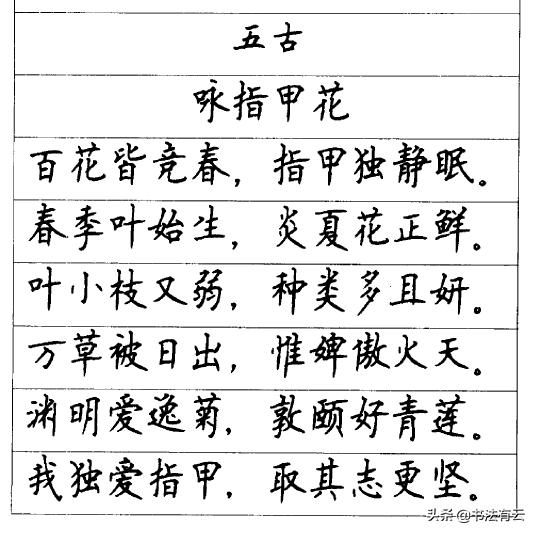 五古
咏指甲花
百花皆竞春，指甲独静眠。
春季叶始生，炎夏花正鲜。
叶小枝又弱，种类多且妍。
万草被日出，惟婢傲火天。
渊明爱逸菊，敦颐好青莲。
我独爱指甲，取其志更坚。
头条 @书法有云